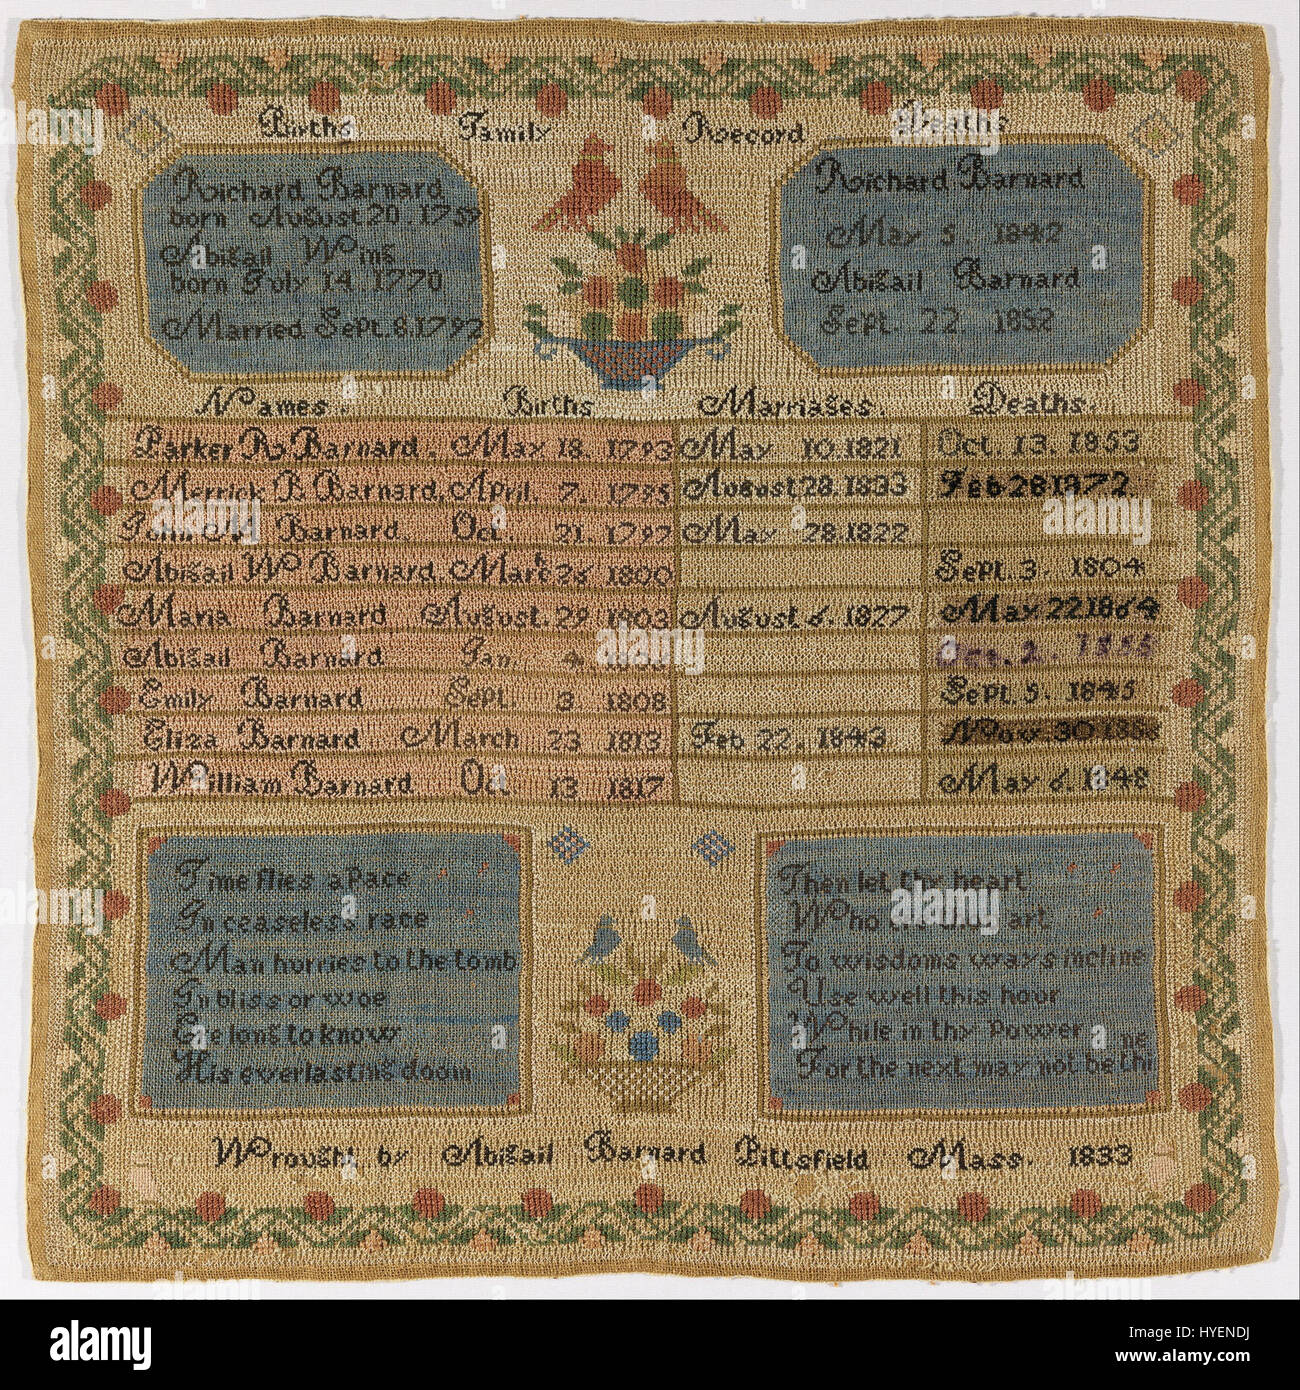 Births Family Record Deaths
Richard Barnard
born August 20. 1759
Abigail Wing
born July 14 1770
Married Sept. 8. 1792
Richard Barnard
May 5. 1842
Abigail Barnard
Sept. 22 1852
Names. Births Marriages. Deaths.
Parker R. Barnard. May 18. 1793 May 10. 1821 Oct. 13. 1853
Merrick B Barnard. April. 7. 1795 August 28. 1833 Feb 28 1872
John M Barnard. Oct. 21. 1797 May 28. 1822
Abigail W Barnard. March 26 1800 Sept. 3. 1804
Maria Barnard August. 29 1803 August 6. 1827 May 22 1864
Abigail Barnard Jan. 4. Oct. 2.
Emily Barnard Sept. 3 1808 Sept. 5. 1845
Eliza Barnard March 23 1813 Feb 22. 1843 Nov. 30
William Barnard Oct 13 1817 May 6. 1848
Time flies apace
In ceaseless race
Man hurries to the tomb
In bliss or woe
Ere long to know
His everlasting doom
Then let thy heart
Who art
To wisdoms ways incline
Use well this hour
While in thy power
For the next may not be thine
Wrought by Abigail Barnard Pittsfield Mass. 1833
alamy
alamy
Image ID: HYENDJ
www.alamy.com